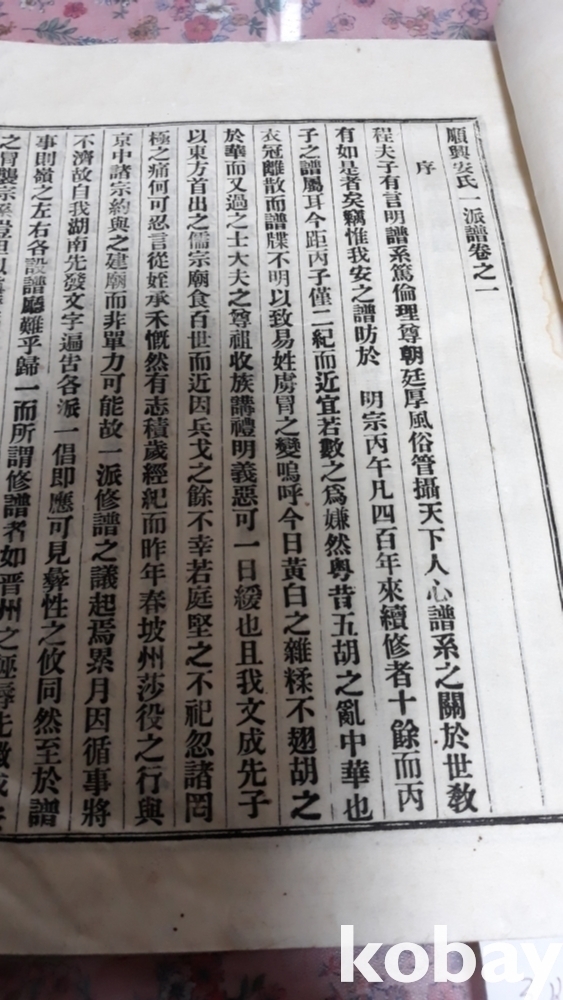 順興安氏一派譜卷之一
序
程夫子有言明譜系篤倫理尊朝廷厚風俗管攝天下人心譜系之關於世敎
有如是者矣竊惟我安之譜昉於 明宗丙午凡四百年來續修者十餘而丙
子之譜屬耳今距丙子僅二紀而近宜若數之爲嫌然粤昔五胡之亂中華也
衣冠離散而譜牒不明以致易姓虜冒之變嗚呼今日黃白之雜糅不翅胡之
於華而又過之士大夫之尊祖收族講禮明義惡可一日緩也且我文成先子
以東方首出之儒宗廟食百世而近因兵戈之餘不幸若庭堅之不祀忽諸罔
極之痛何可忍言從姪承禾慨然有志積歲經紀而昨年春坡州莎役之行與
京中諸宗約與之建廟而非單力可能故一派修譜之議起焉累月因循事將
不濟故自我湖南先發文字遍告各派一倡卽應可見彜性之攸同然至於譜
事則嶺之左右各設譜廳難乎歸一而所謂修譜者如晋州之誣辱先徽
之冒襲宗
kobay